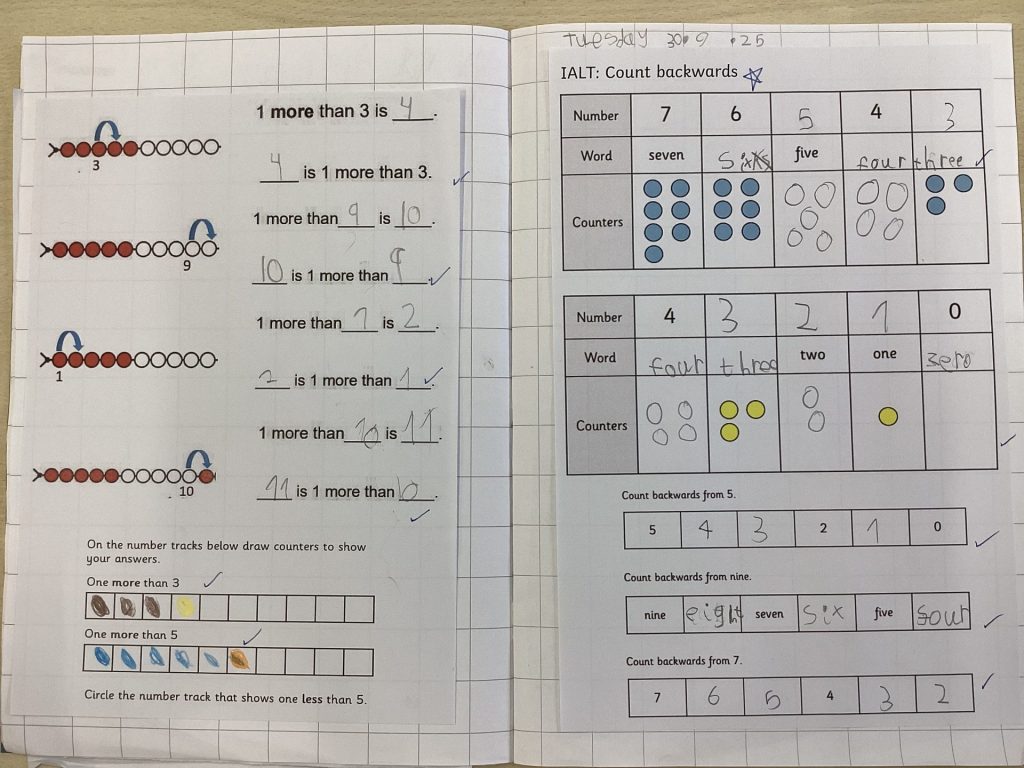 1 more than 3 is 4.
3
4 is 1 more than 3.
1 more than 9 is 10.
9
10 is 1 more than 9.
1 more than 1 is 2.
1
2 is 1 more than 1.
1 more than 10 is 11.
10
11 is 1 more than 10.
On the number tracks below draw counters to show
your answers.
One more than 3
One more than 5
Circle the number track that shows one less than 5.
Tuesday 30.9.25
IALT: Count backwards
Number 7 6 5 4 3
Word seven six five four three
Counters
Number 4 3 2 1 0
Word four three two one zero
Counters
Count backwards from 5.
5 4 3 2 1 0
Count backwards from nine.
nine eight seven six five four
Count backwards from 7.
7 6 5 4 3 2